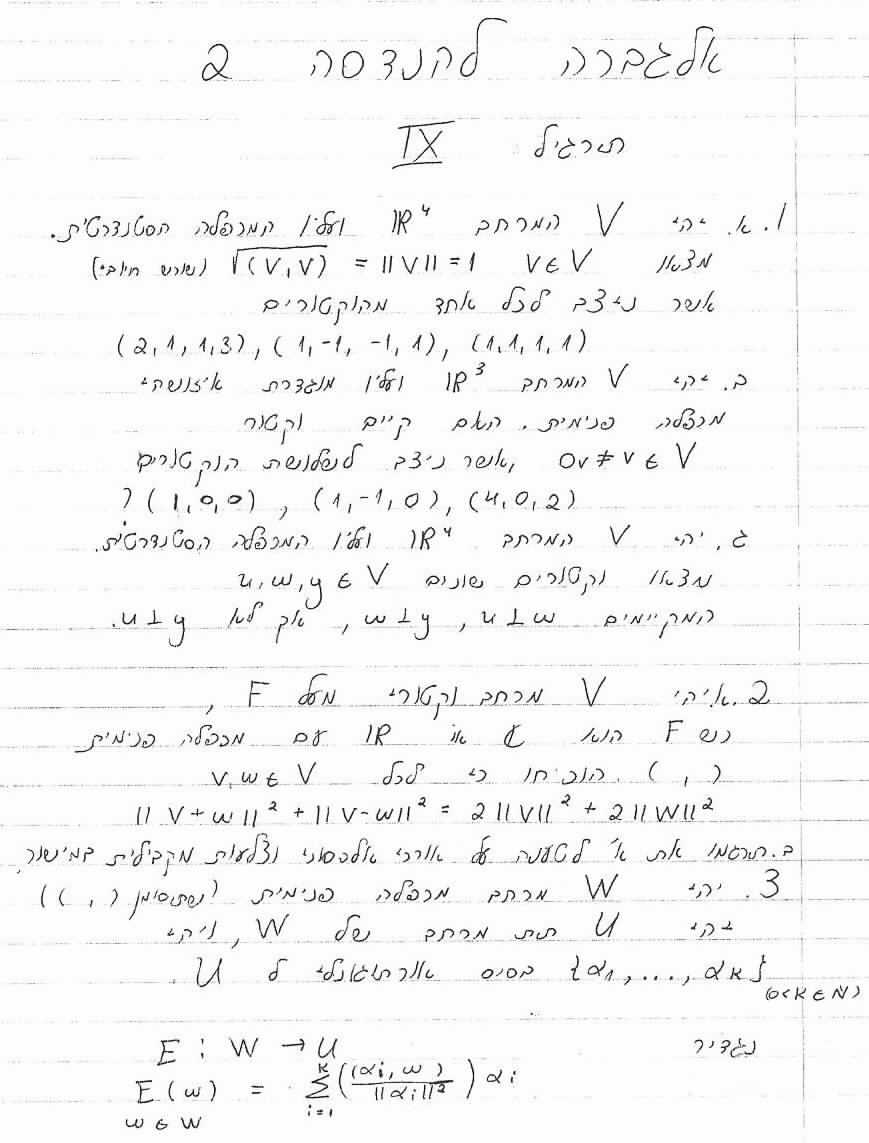 אלגברה להנדסה 2
תרגיל IX
1. א. יהי V המרחב ℝ⁴ ועליו המכפלה הסטנדרטית.
מצאו v∈V √(v,v) = ||v|| = 1 (שורש חיובי)
אשר ניצב לכל אחד מהוקטורים
(2,1,1,3), (1,-1,-1,1), (1,1,1,1)
ב. יהי V המרחב ℝ³ ועליו מוגדרת איזושהי
מכפלה פנימית. האם קיים וקטור
0v ≠ v ∈ V, אשר ניצב לשלושת הוקטורים
(1,0,0), (1,-1,0), (4,0,2)?
ג. יהי V המרחב ℝ⁴ ועליו המכפלה הסטנדרטית.
מצאו וקטורים שונים u,w,y ∈ V
המקיימים u⊥w, w⊥y, אך לא u⊥y.
2. א. יהי V מרחב וקטורי מעל F,
כש F הוא ℂ או ℝ עם מכפלה פנימית
( , ). הוכיחו כי לכל v,w ∈ V
||v+w||² + ||v-w||² = 2||v||² + 2||w||²
ב. תרגמו את א' לטענה על אורכי אלכסוני וצלעות מקבילית במישור.
3. יהי W מרחב מכפלה פנימית (שתסומן ( , ))
יהי U תת מרחב של W, ויהי
{α₁,...,αₖ} בסיס אורתוגונלי ל U.
(0<k∈ℕ)
נגדיר E : W → U
E(w) = Σᵢ₌₁ᵏ ((αᵢ, w) / ||αᵢ||²) αᵢ
w ∈ W